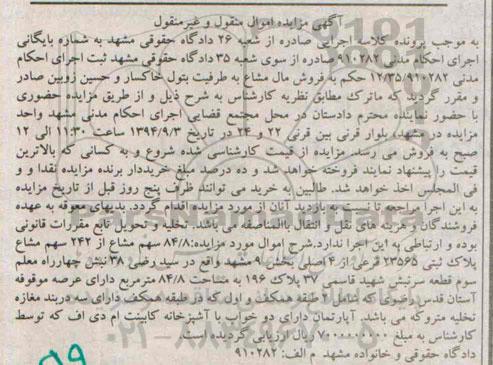 آگهی مزایده اموال منقول و غیرمنقول
به موجب پرونده کلاسه اجرایی صادره از شعبه ۲۶ دادگاه حقوقی مشهد به شماره بایگانی
اجرای احکام مدنی ۹۱۰۲۸۲ صادره از سوی شعبه ۳۵ دادگاه حقوقی مشهد ثبت اجرای احکام
مدنی ۱۲/۳۵/۹۱۰۲۸۲ حکم به فروش مال مشاع به طرفیت بتول خاکسار و حسین زوبین صادر
و مقرر گردید که ماترک مطابق نظریه کارشناس به شرح ذیل و از طریق مزایده حضوری
با حضور نماینده محترم دادستان در محل مجتمع قضایی اجرای احکام مدنی مشهد واحد
مزایده در مشهد، بلوار قرنی بین قرنی ۲۲ و ۲۴ در تاریخ ۱۳۹۴/۹/۳ ساعت ۱۱:۳۰ الی ۱۲
صبح به فروش می رسد. مزایده از قیمت کارشناسی شده شروع و به کسانی که بالاترین
قیمت را پیشنهاد نمایند فروخته خواهد شد و ده درصد مبلغ خریددار برنده مزایده نقدا و
فی المجلس اخذ خواهد شد. طالبین به خرید می توانند ظرف پنج روز قبل از تاریخ مزایده
به این اجرا مراجعه تا نسبت به بازدید آنان از مورد مزایده اقدام گردد. بدیهای معوقه به عهده
فروشندگان و هزینه های نقل و انتقال بالمناصفه می باشد. تخلیه و تحویل تابع مقررات قانونی
بوده و ارتباطی به این اجرا ندارد.شرح اموال مورد مزایده:۸۴/۸ سهم مشاع از ۲۴۲ سهم مشاع
پلاک ثبتی ۲۳۵۶۵ فرعی از ۴ اصلی بخش ۹ مشهد واقع در سید رضی ۳۸ نبش چهارراه معلم
سوم قطعه سرنبش شهید قاسمی ۳۷ پلاک ۱۹۶ به مساحت ۸۴/۸ مترمربع دارای عرصه موقوفه
آستان قدس رضوی که شامل ۲ طبقه همکف و اول که در طبقه همکف دارای سه دربند مغازه
تخلیه متروکه می باشد. آپارتمان دارای دو خواب با آشپزخانه کابینت ام دی اف که توسط
کارشناس به مبلغ ۷۰۰۰۰۰۰۰۰۰ ریال ارزیابی گردیده است.
دادگاه حقوقی و خانواده مشهد م الف: ۹۱۰۲۸۲
ParsNamadData
۰۲۱-۸۸۳۴۹۶۷۰-۵
۹۹